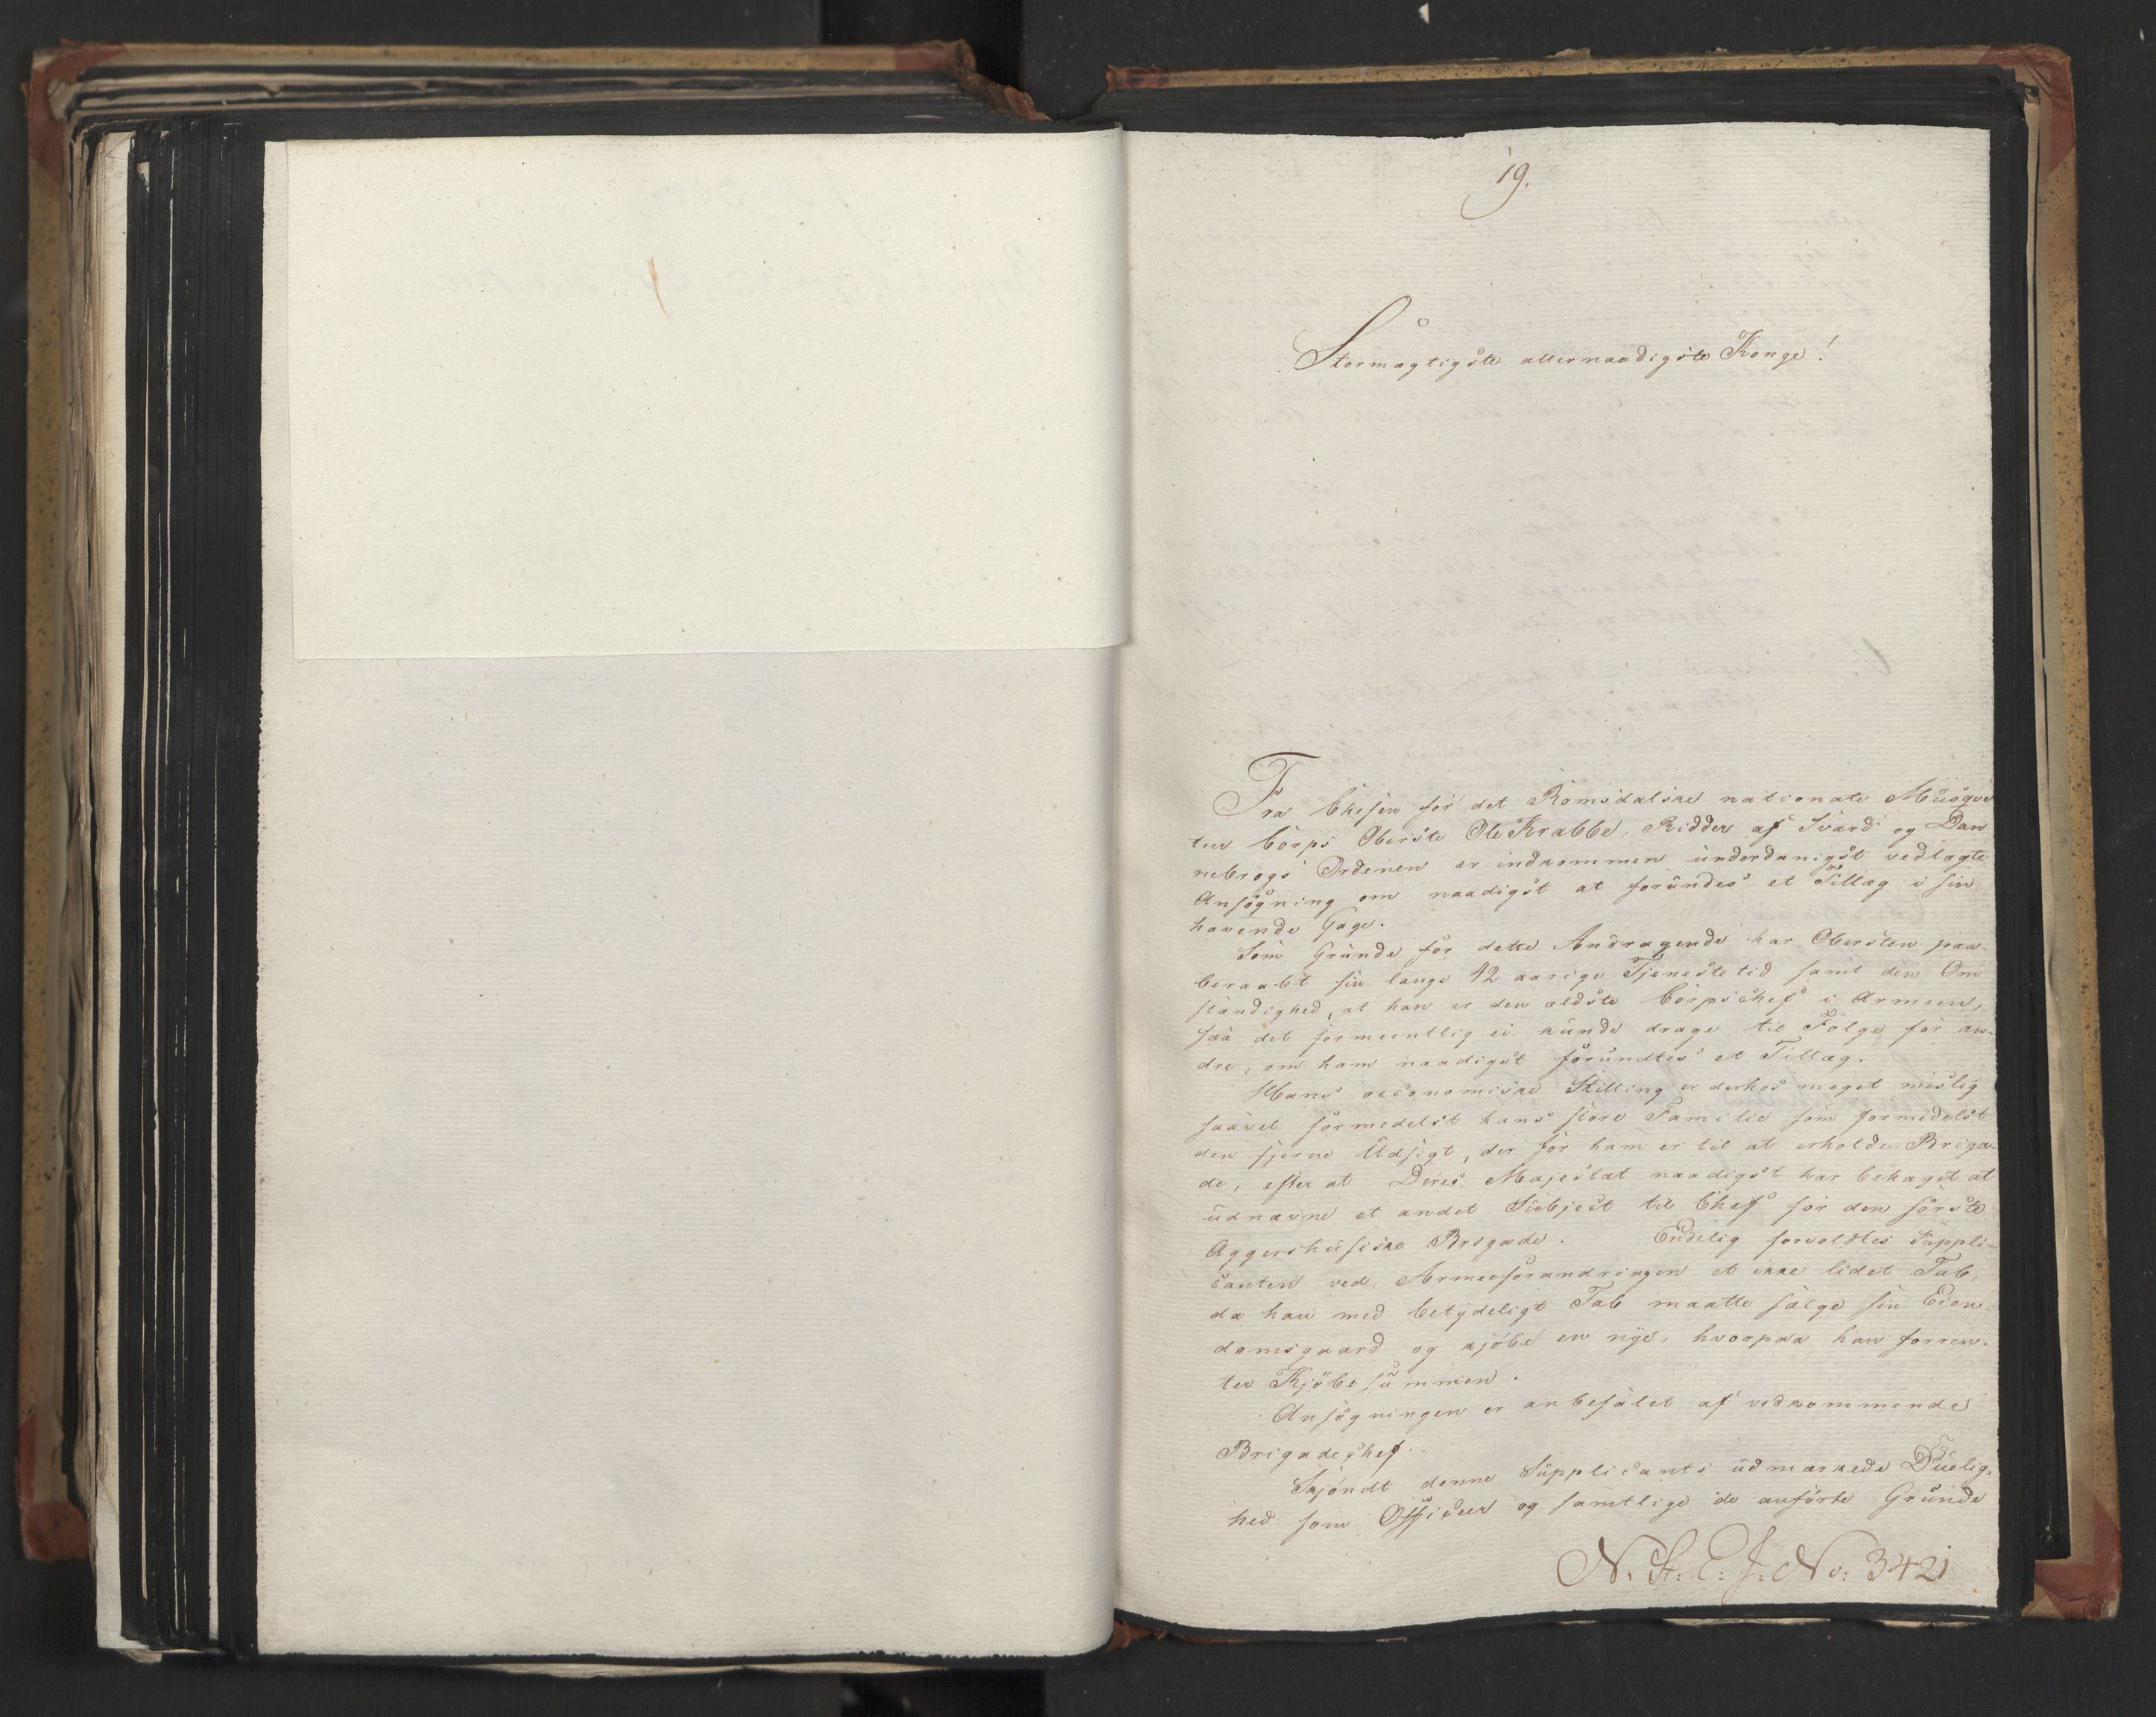 19.
Stormægtigste allernaadigste Konge!
Fra Chefen for det Romsdalske nationale Musqve
teer Corps Oberste Ole Krabbe, Ridder af Sværd og Dan
nebrogs Ordenen er indkommen underdanigst vedlagte
Ansøgning om naadigst at forundes et Tillæg i sin
havende Gage.
Som Grunde for dette Andragende har Obersten paa-
beraabt sin lange 42 aarige Tjenestetid samt den Om
stændighed, at han er den ældste Corpschef i Armeen,
saa det formeentlig ei kunde drage til Følge for an-
dre, om ham naadigst forundtes et Tillæg.
Hans oeconomiske Stilling er derhos meget mislig
saavel formedelst hans store Familie som formedelst
den fjerne Udsigt, der for ham er til at erholde Briga-
de, efter at Deres Majestæt naadigst har behaget at
udnævne et andet Subject til Chef for den første
Aggershusiske Brigade. Endelig forvoldtes Suppli-
canten ved Armeeforandringen et ikke lidet Tab,
da han med betydeligt Tab maatte sælge sin Eien-
domsgaard og kjøbe en nye, hvorpaa han forren-
ter Kjøbesummen.
Ansøgningen er anbefalet af vedkommende
Brigadechef.
Skjøndt denne Supplicants udmærkede Duelig-
hed som Officeer og samtlige de anførte Grunde
N. St: C: J: No: 3421